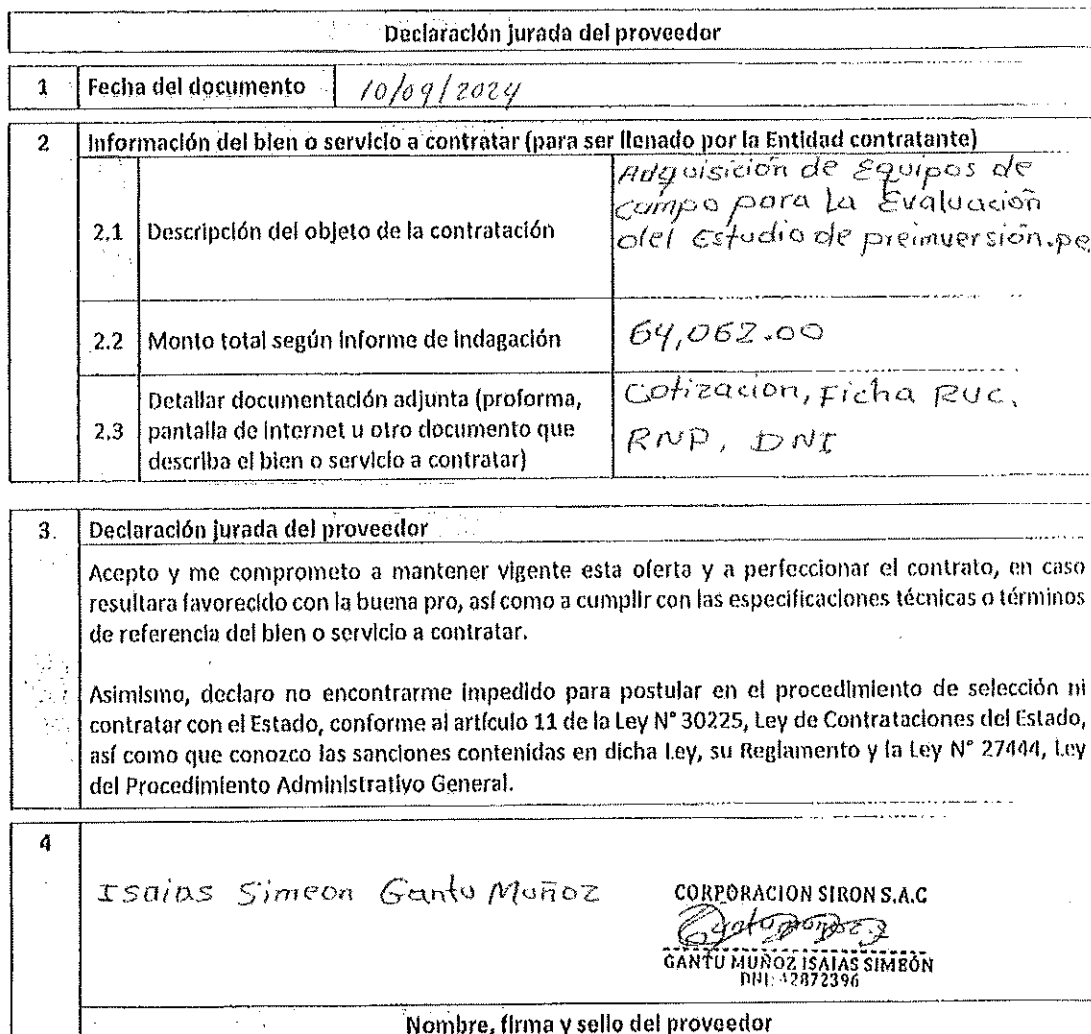 Declaración jurada del proveedor
1 Fecha del documento 10/09/2024
2 Información del bien o servicio a contratar (para ser llenado por la Entidad contratante)
2.1 Descripción del objeto de la contratación
Adquisición de Equipos de
campo para la Evaluación
del Estudio de preinversión.pe
2.2 Monto total según informe de indagación 64,062.00
2.3 Detallar documentación adjunta (proforma,
pantalla de internet u otro documento que
describa el bien o servicio a contratar)
Cotización, Ficha RUC,
RNP, DNI
3. Declaración jurada del proveedor
Acepto y me comprometo a mantener vigente esta oferta y a perfeccionar el contrato, en caso
resultara favorecido con la buena pro, así como a cumplir con las especificaciones técnicas o términos
de referencia del bien o servicio a contratar.
Asimismo, declaro no encontrarme impedido para postular en el procedimiento de selección ni
contratar con el Estado, conforme al artículo 11 de la Ley N° 30225, Ley de Contrataciones del Estado,
así como que conozco las sanciones contenidas en dicha Ley, su Reglamento y la Ley N° 27444, Ley
del Procedimiento Administrativo General.
4
Isaias Simeon Gantu Muñoz
CORPORACION SIRON S.A.C
GANTU MUÑOZ ISAIAS SIMEÓN
DNI: 42872396
Nombre, firma y sello del proveedor